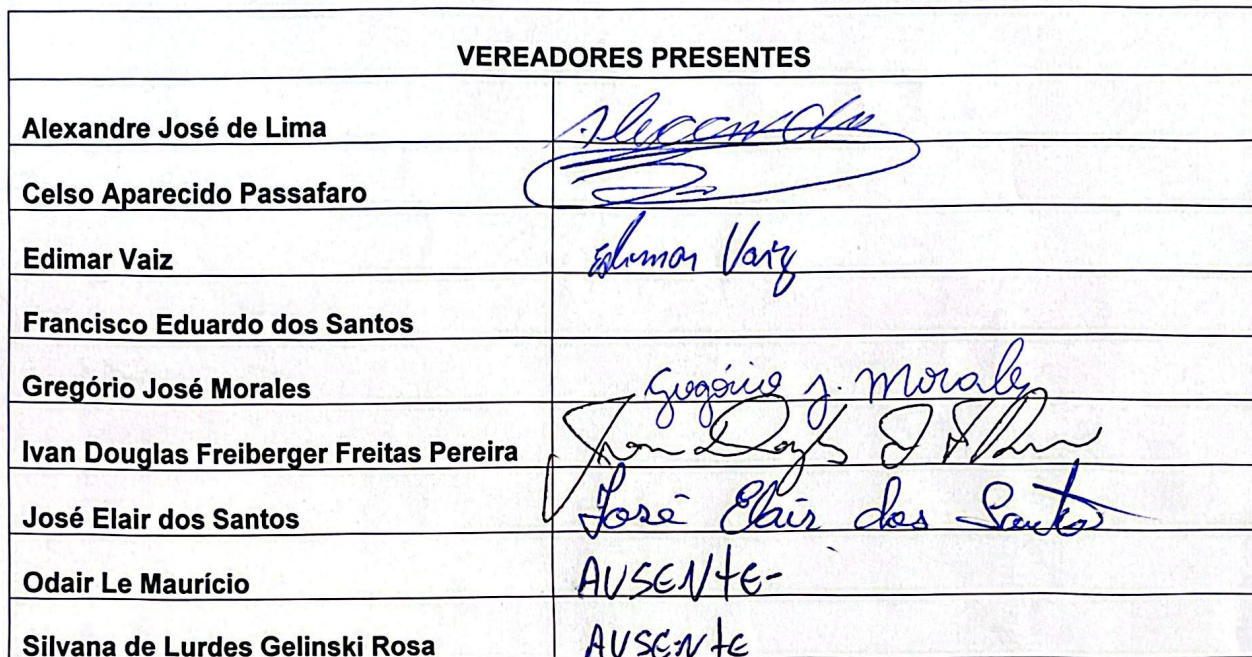 VEREADORES PRESENTES
Alexandre José de Lima Alexandre
Celso Aparecido Passafaro
Edimar Vaiz Edimar Vaiz
Francisco Eduardo dos Santos
Gregório José Morales Gregório J. Morales
Ivan Douglas Freiberger Freitas Pereira Ivan Douglas
José Elair dos Santos José Elair dos Santos
Odair Le Maurício AUSENTE-
Silvana de Lurdes Gelinski Rosa AUSENTE